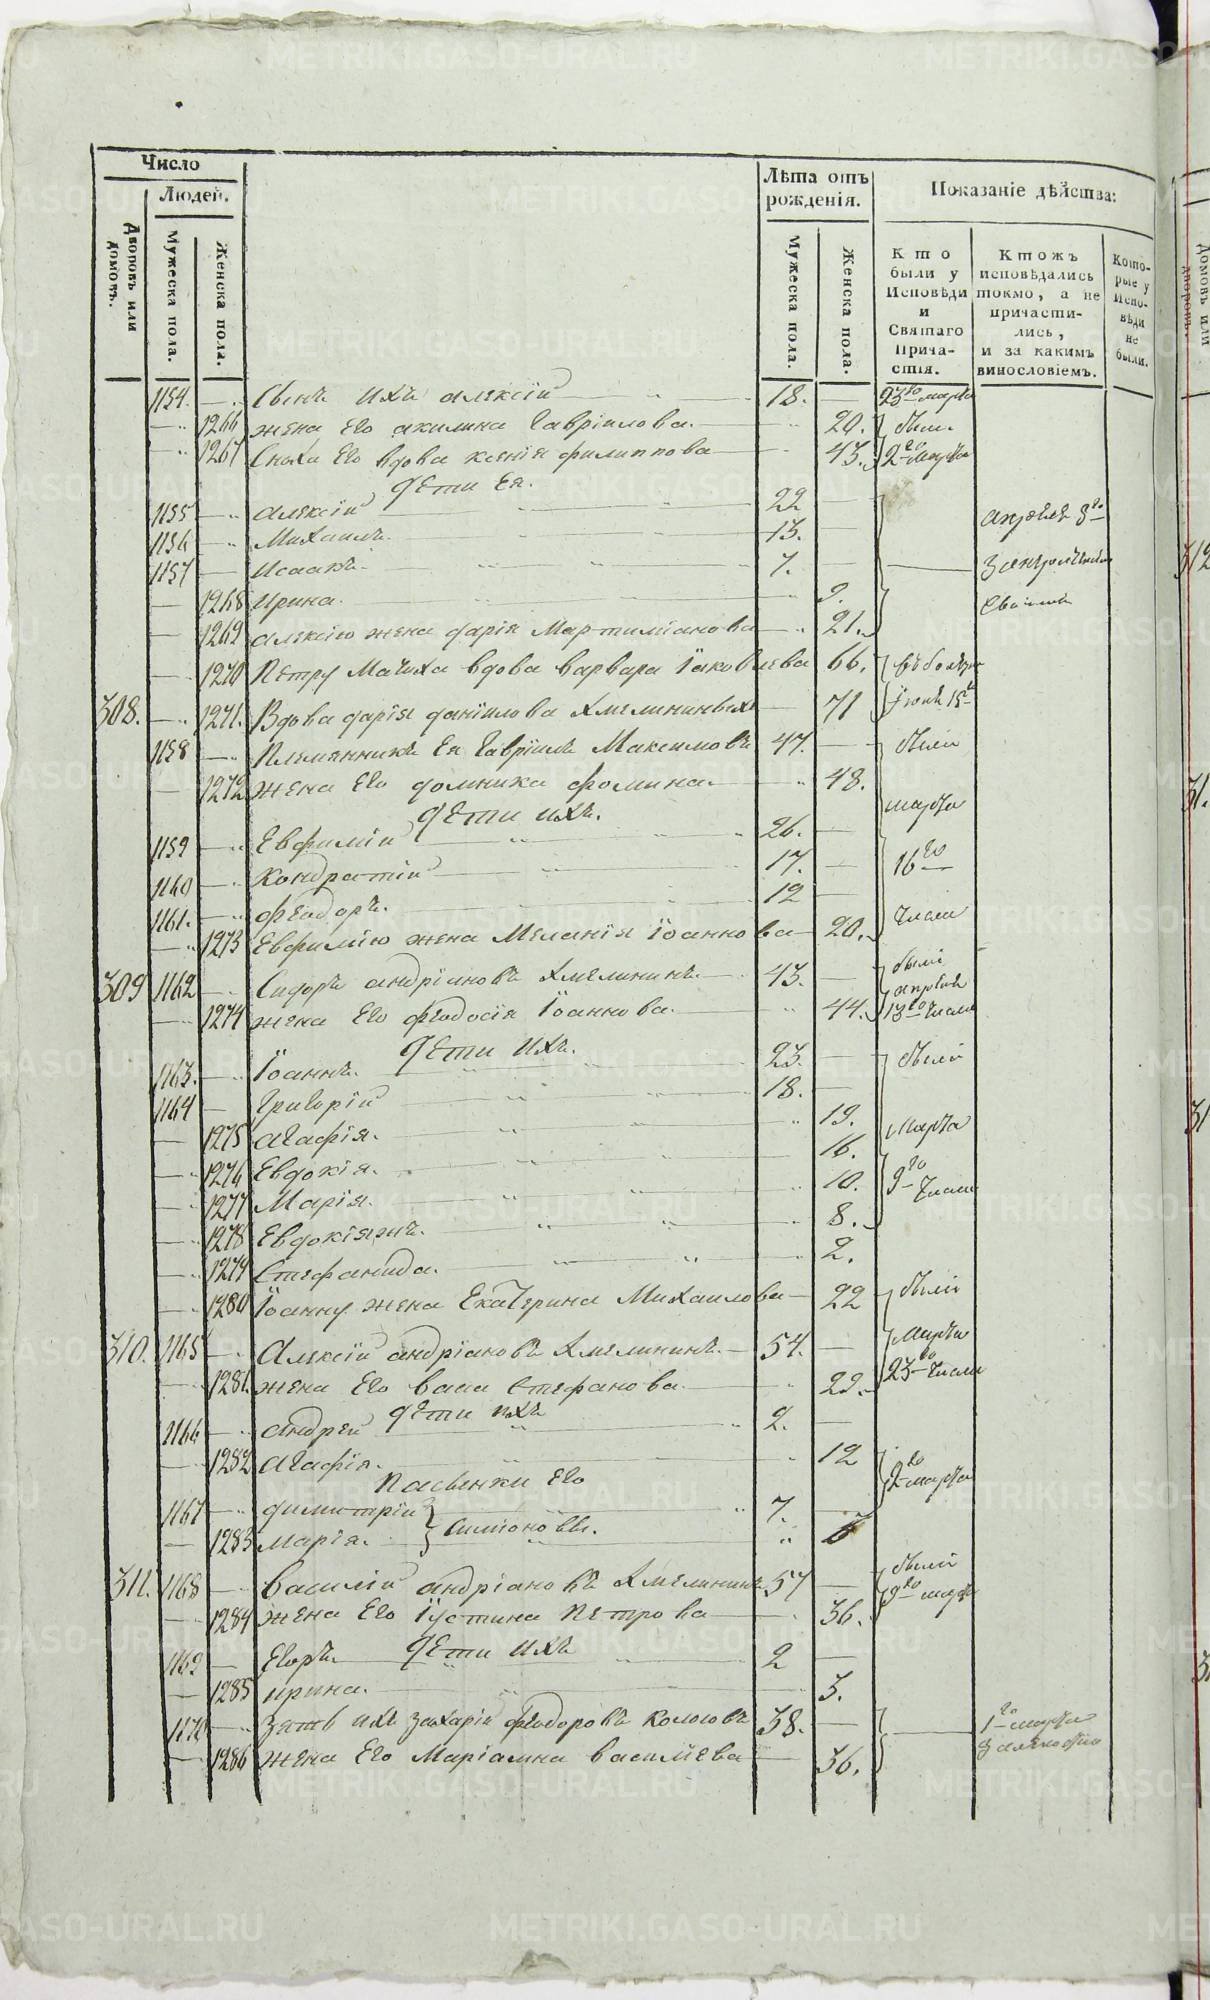 Число
Людей.
Дворовъ или домовъ.
Мужеска пола.
Женска пола.
Лѣта отъ рожденія.
Мужеска пола.
Женска пола.
Показаніе дѣйства:
Кто были у Исповѣди и Святаго Причастія.
Ктожъ исповѣдались токмо, а не причастились, и за какимъ винословіемъ.
Которые у Исповѣди не были.
1154. Сынъ ихъ Алексій 18. 23го марта
1266 жена Его Акилина Гавріилова. 20. были
1267 Сноха Его вдова Ксенія Филиппова 43. 2го марта
Дѣти Ея.
1155 Алексій 22 Апрѣля 3го
1156 Михаилъ 13.
1157 Исаакъ 7.
1268 Ирина. 9.
1269 Алексію жена Дарія Мартиміанова 21.
1270 Петру Мачиха вдова Варвара Іаковлева 66.
308. 1271. Вдова Даріа Даніилова Хмелининыхъ 71 Іюня 15
1158 Племянникъ Ея Гавріилъ Максимовъ 47. были
1272 жена Его Домника Фомина 48. марта
Дѣти ихъ.
1159 Евфимій 26.
1160 Кондратій 17. 16го
1161. Феодоръ. 12 числа
1273 Евфимію жена Меланія Іоаннова 20.
309 1162 Сидоръ Андріановъ Хмелининъ 43. были Апрѣля
1274 жена Его Феодосія Іоаннова. 44. 13го числа
Дѣти ихъ.
1163. Іоаннъ. 23. были
1164 Григорій 18.
1275 Агафія. 19. Марта
1276 Евдокія. 16. 9го
1277 Марія. 10. числа
1278 Евдокіяжъ. 8.
1279 Стефанида. 2.
1280 Іоанну жена Екатерина Михаилова 22 были
310. 1165 Алексій Андріановъ Хмелининъ. 54. Марта
1281. жена Его Васа Стефанова 29. 23го числа
Дѣти ихъ
1166 Андрей 2.
1282 Агафія. 12 2го марта
Пасынки Его
1167 Димитрій 7.
Симіоновы.
1283 Марія. 6
311. 1168 Василій Андріановъ Хмелининъ 57 были
1284 жена Его Іустина Петрова 36. 9го марта
Дѣти ихъ
1169 Егоръ. 2
1285 Ирина. 3.
1170 Зять ихъ Захарій Феодоровъ 38. 1го марта
1286 жена Его Маріамна Василіева 36.
METRIKI.GASO-URAL.RU